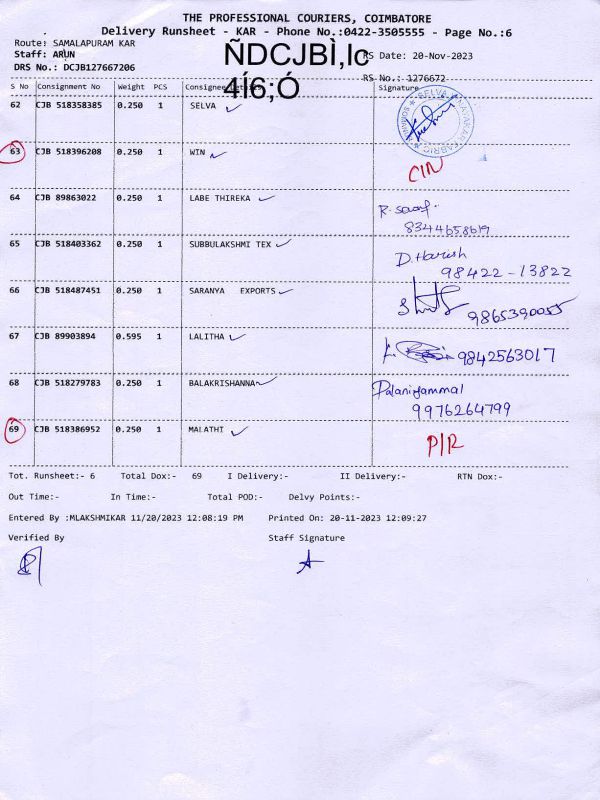 THE PROFESSIONAL COURIERS, COIMBATORE
Delivery Runsheet - KAR - Phone No.:0422-3505555 - Page No.:6
Route: SAMALAPURAM KAR
Staff: ARUN
DRS No.: DCJB127667206
ÑDCJBÌ,lc
4Í6;Ó
RS Date: 20-Nov-2023
RS No.: 1276672
S No Consignment No Weight PCS Consignee Details Signature
62 CJB 518358385 0.250 1 SELVA
63 CJB 518396208 0.250 1 WIN
64 CJB 89863022 0.250 1 LABE THIREKA
8344658619
65 CJB 518403362 0.250 1 SUBBULAKSHMI TEX D. Harish
98422-13822
66 CJB 518487451 0.250 1 SARANYA EXPORTS
9865390055
67 CJB 89903894 0.595 1 LALITHA 9842563017
68 CJB 518279783 0.250 1 BALAKRISHNAN Palaniyammal
9976264799
69 CJB 518386952 0.250 1 MALATHI P/R
Tot. Runsheet:- 6 Total Dox:- 69 I Delivery:- II Delivery:- RTN Dox:-
Out Time:- In Time:- Total POD:- Delvy Points:-
Entered By :MLAKSHMIKAR 11/20/2023 12:08:19 PM Printed On: 20-11-2023 12:09:27
Verified By Staff Signature